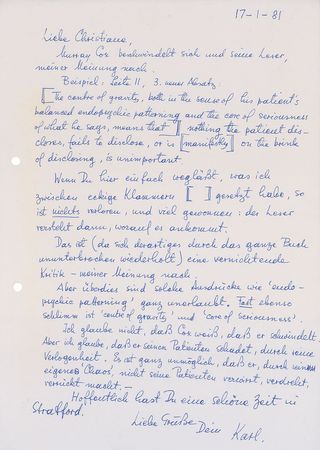 17-1-81
Liebe Christiane,
Murray Cox beschwindelt sich und seine Leser,
meiner Meinung nach.
Beispiel: Seite 11, 3. neuer Absatz:
[The centre of gravity, both in the sense of his patient's
balanced endopsychic patterning and the core of seriousness
of what he says, means that] nothing the patient dis-
closes, fails to disclose, or is [manifestly] on the brink
of disclosing, is unimportant.
Wenn Du hier einfach wegläßt, was ich
zwischen eckige Klammern [ ] gesetzt habe, so
ist nichts verloren, und viel gewonnen: der Leser
versteht dann, worauf es ankommt.
Das ist (da sich derartiges durch das ganze Buch
ununterbrochen wiederholt) eine vernichtende
Kritik – meiner Meinung nach.
Aber überdies sind solche Ausdrücke wie 'endo-
psychic patterning' ganz unerlaubt. Fast ebenso
schlimm ist 'centre of gravity' und 'core of seriousness'.
Ich glaube nicht, daß Cox weiß, daß er schwindelt.
Aber ich glaube, daß er seinen Patienten schadet, durch seine
Verlogenheit. Es ist ganz unmöglich, daß er, durch sein
eigenes Chaos, nicht seine Patienten verwirrt, verdreht,
verrückt macht. –
Hoffentlich hast Du eine schöne Zeit in
Stratford.
Liebe Grüße
Dein Karl.